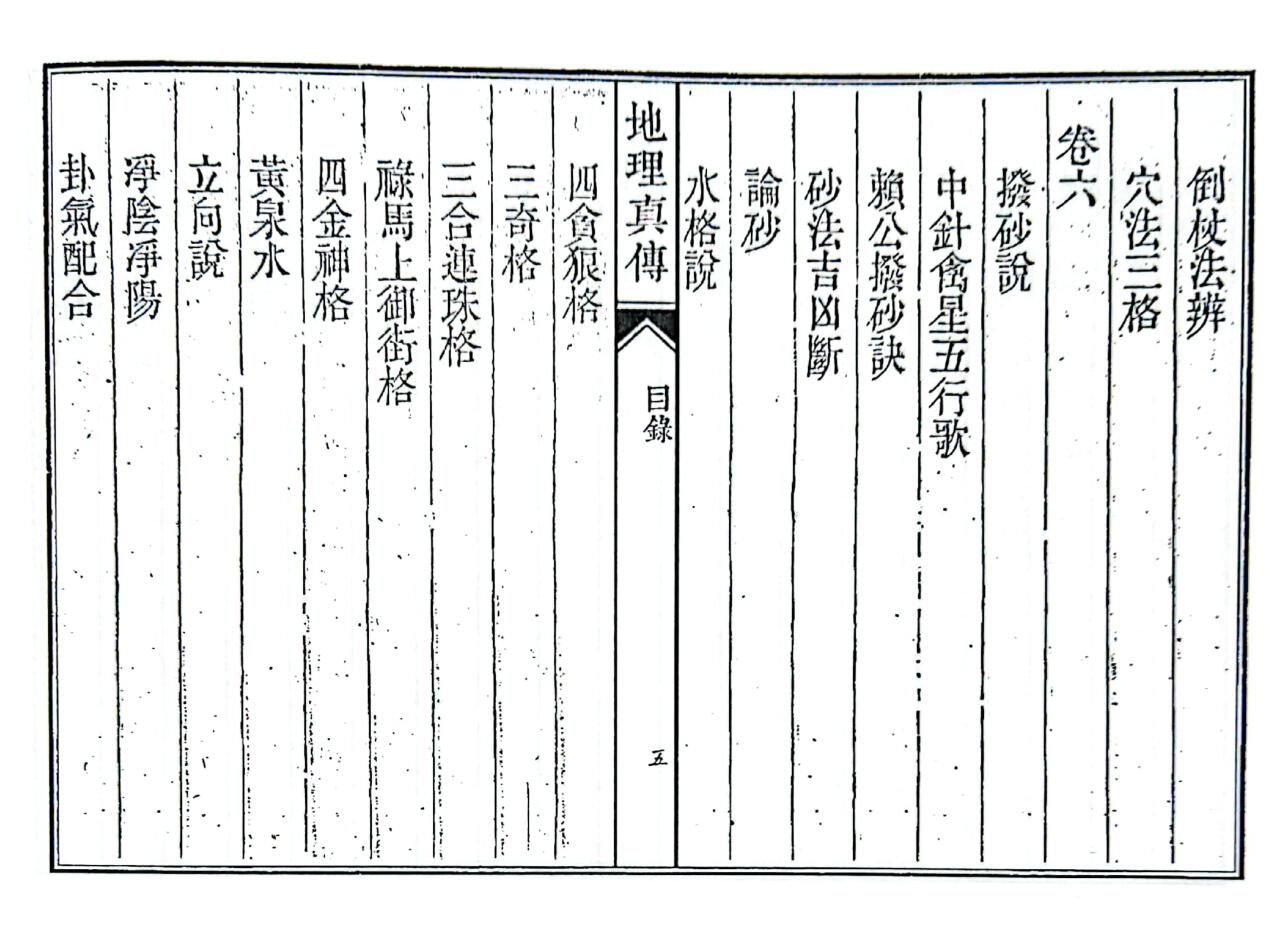 倒杖法辨
穴法三格
卷六
撥砂說
中針禽星五行歌
賴公撥砂訣
砂法吉凶斷
論砂
水格說
地理真傳
目錄
五
四貪狼格
三奇格
三合連珠格
祿馬上御街格
四金神格
黃泉水
立向說
凈陰凈陽
卦氣配合